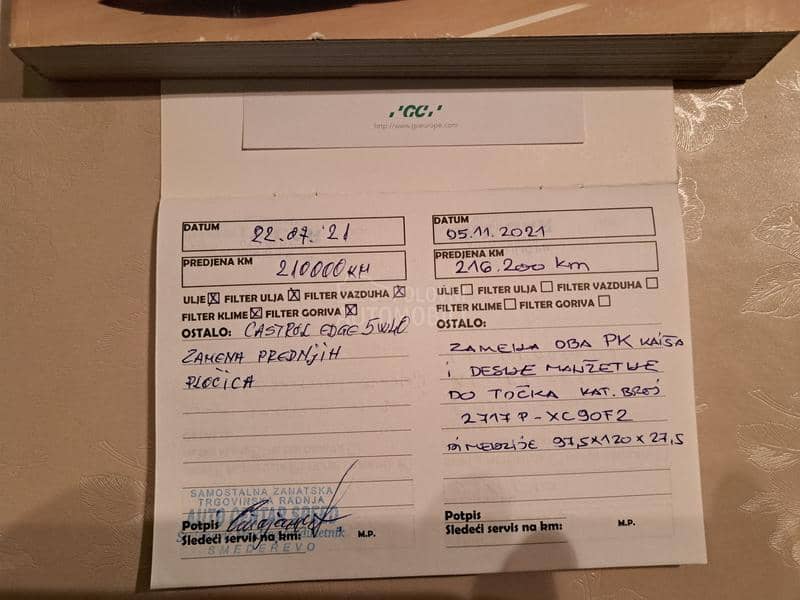 GC
http://www.gceurope.com
DATUM 22.07.'21
PREDJENA KM 210000 KM
ULJE FILTER ULJA FILTER VAZDUHA
FILTER KLIME FILTER GORIVA
OSTALO: CASTROL EDGE 5W40
ZAMENA PREDNJIH
PLOČICA
SAMOSTALNA ZANATSKA
TRGOVINSKA RADNJA
AUTO CENTAR SPEED
Potpis
Sledeći servis na km:
M.P.
SMEDEREVO
DATUM 05.11.2021
PREDJENA KM 216.200 km
ULJE FILTER ULJA FILTER VAZDUHA
FILTER KLIME FILTER GORIVA
OSTALO:
ZAMENA OBA PK KAIŠA
I DESNE MANŽETNE
DO TOČKA KAT. BROJ
2717P-XC90F2
DIMENZIJE 97,5X120X27,5
Potpis
Sledeći servis na km:
M.P.